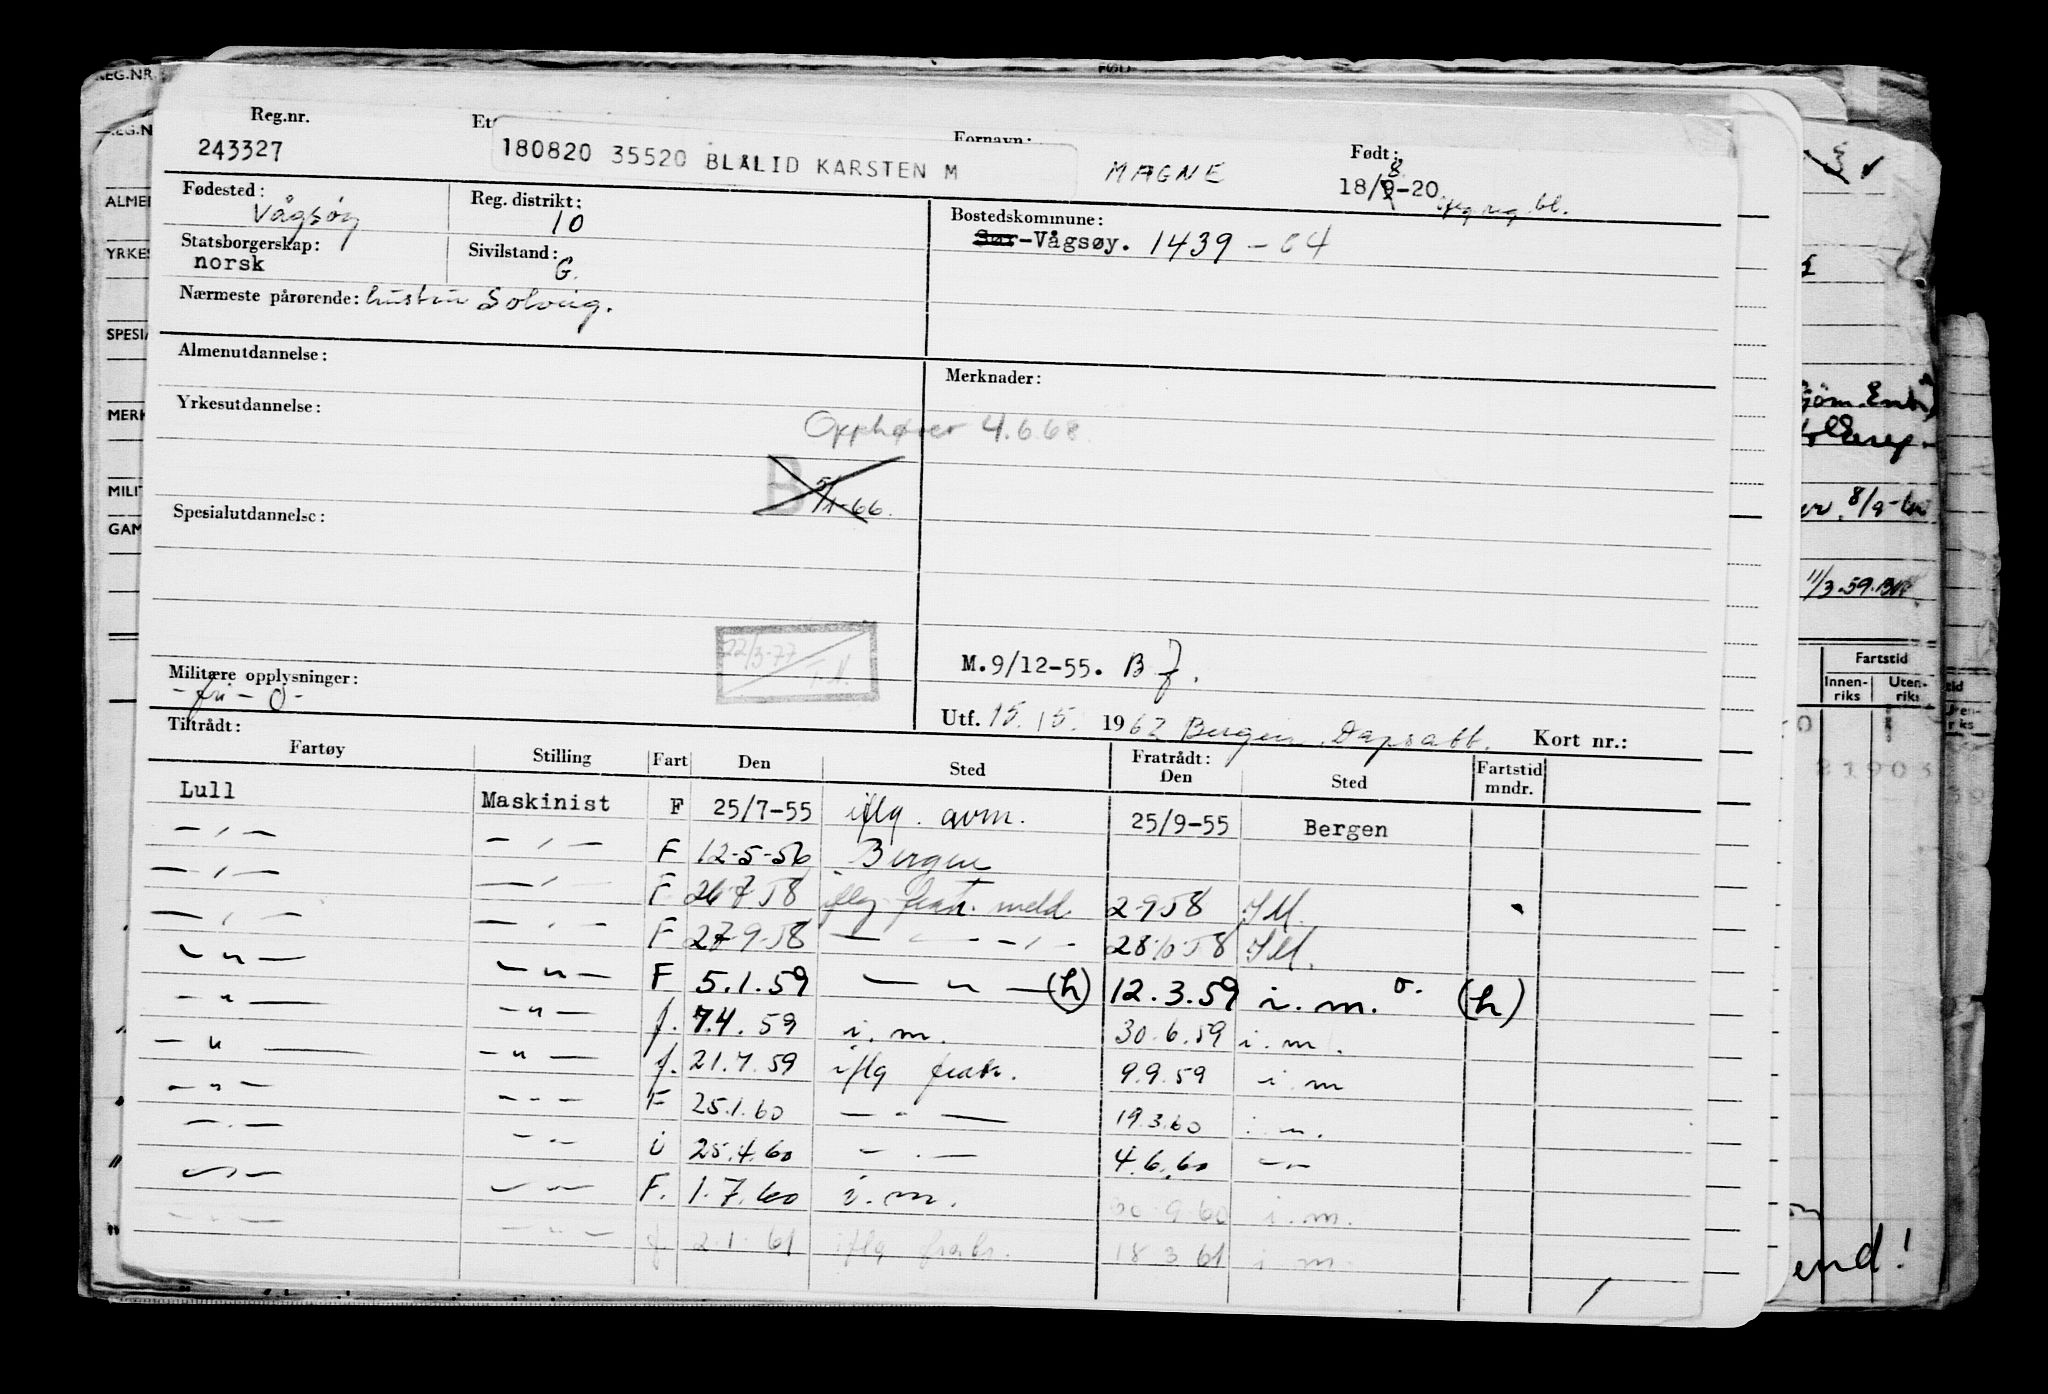 Reg.nr.
Fornavn:
Født:
243327
180820 35520 BLÅLID KARSTEN M
MAGNE
18/8-20
Fødested:
Vågsøy
Reg. distrikt:
10
Bostedskommune:
Sør-Vågsøy. 1439-04
Statsborgerskap:
norsk
Sivilstand:
G.
Nærmeste pårørende: hustru Solveig.
Almenutdannelse:
Merknader:
Yrkesutdannelse:
Opphører 4.6.68
B 5/1-66
Spesialutdannelse:
22/3-77
M.9/12-55. B
Militære opplysninger:
-fri-
Utf. 15.15. 1962 Bergen
Kort nr.:
Tiltrådt:
Fratrådt:
Fartøy Stilling Fart Den Sted Den Sted Fartstid mndr.
Lull Maskinist F 25/7-55 iflg. avm. 25/9-55 Bergen
-"- -"- F 12-5-56 Bergen
-"- -"- F 26-7-58 iflg. fratr. meld. 2-9-58
-"- -"- F 27-9-58 -"- 28-10-58
-"- -"- F 5.1.59 -"- (h) 12.3.59 i.m. (h)
-"- -"- f. 7.4.59 i.m. 30.6.59 i.m.
-"- -"- f. 21.7.59 iflg fratr. 9.9.59 i.m
-"- -"- F 25.1.60 -"- 19.3.60 i.m.
-"- -"- i 25.4.60 -"- 4.6.60 -"-
-"- -"- F. 1.7.60 i.m. 30.9.60 i.m.
-"- -"- f 2.1.61 iflg fratr. 18.3.61 i.m.
REG.NR.
ALMEN
YRKES
SPESIA
MERK
MILIT
GAM
8/9-
11/3.59.
Fartstid
Innen-
riks
Uten-
riks
81903
end!